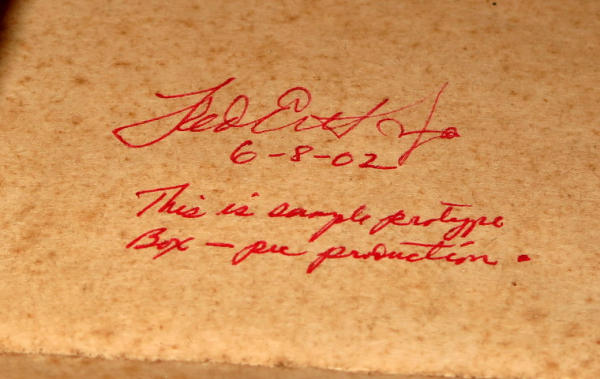 Fred Ertl Jr.
6-8-02
This is sample protype
Box – pre production.